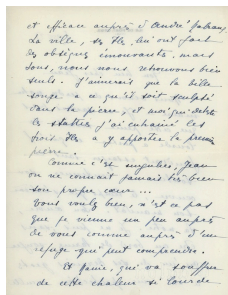 et efficace auprès d'André
La ville, ses îles, lui ont fait
des obsèques émouvants, mais
nous, nous nous retrouvons bien
seuls. J'aimerais que la belle
songe à ce qu'il soit sculpté
dans la pierre, et moi qui déteste
les statues j'ai entraîné les
trois îles à y apporter la première
pierre.
Comme c'est singulier, Jean
on ne connaît jamais très bien
son propre cœur...
Vous voulez bien, n'est ce pas
que je vienne un peu auprès
de vous comme auprès d'un
refuge qui peut comprendre.
Et qui va souffrir
de cette chaleur si lourde